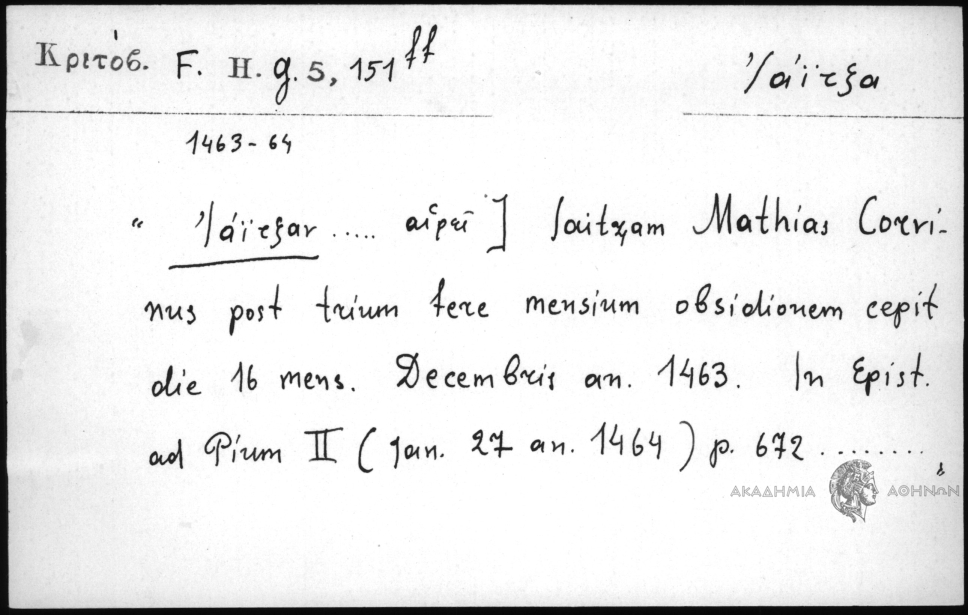 Κριτόβ. F. H. g. 5, 151 ff
Ἰάϊτζα
1463 - 64
" Ἰάϊτζαν ..... αἱρεῖ ] Iaitzam Mathias Corvi-
nus post trium fere mensium obsidionem cepit
die 16 mens. Decembris an. 1463. In Epist.
ad Pium II ( Jan. 27 an. 1464 ) p. 672 .........
ΑΚΑΔΗΜΙΑ ΑΘΗΝΩΝ